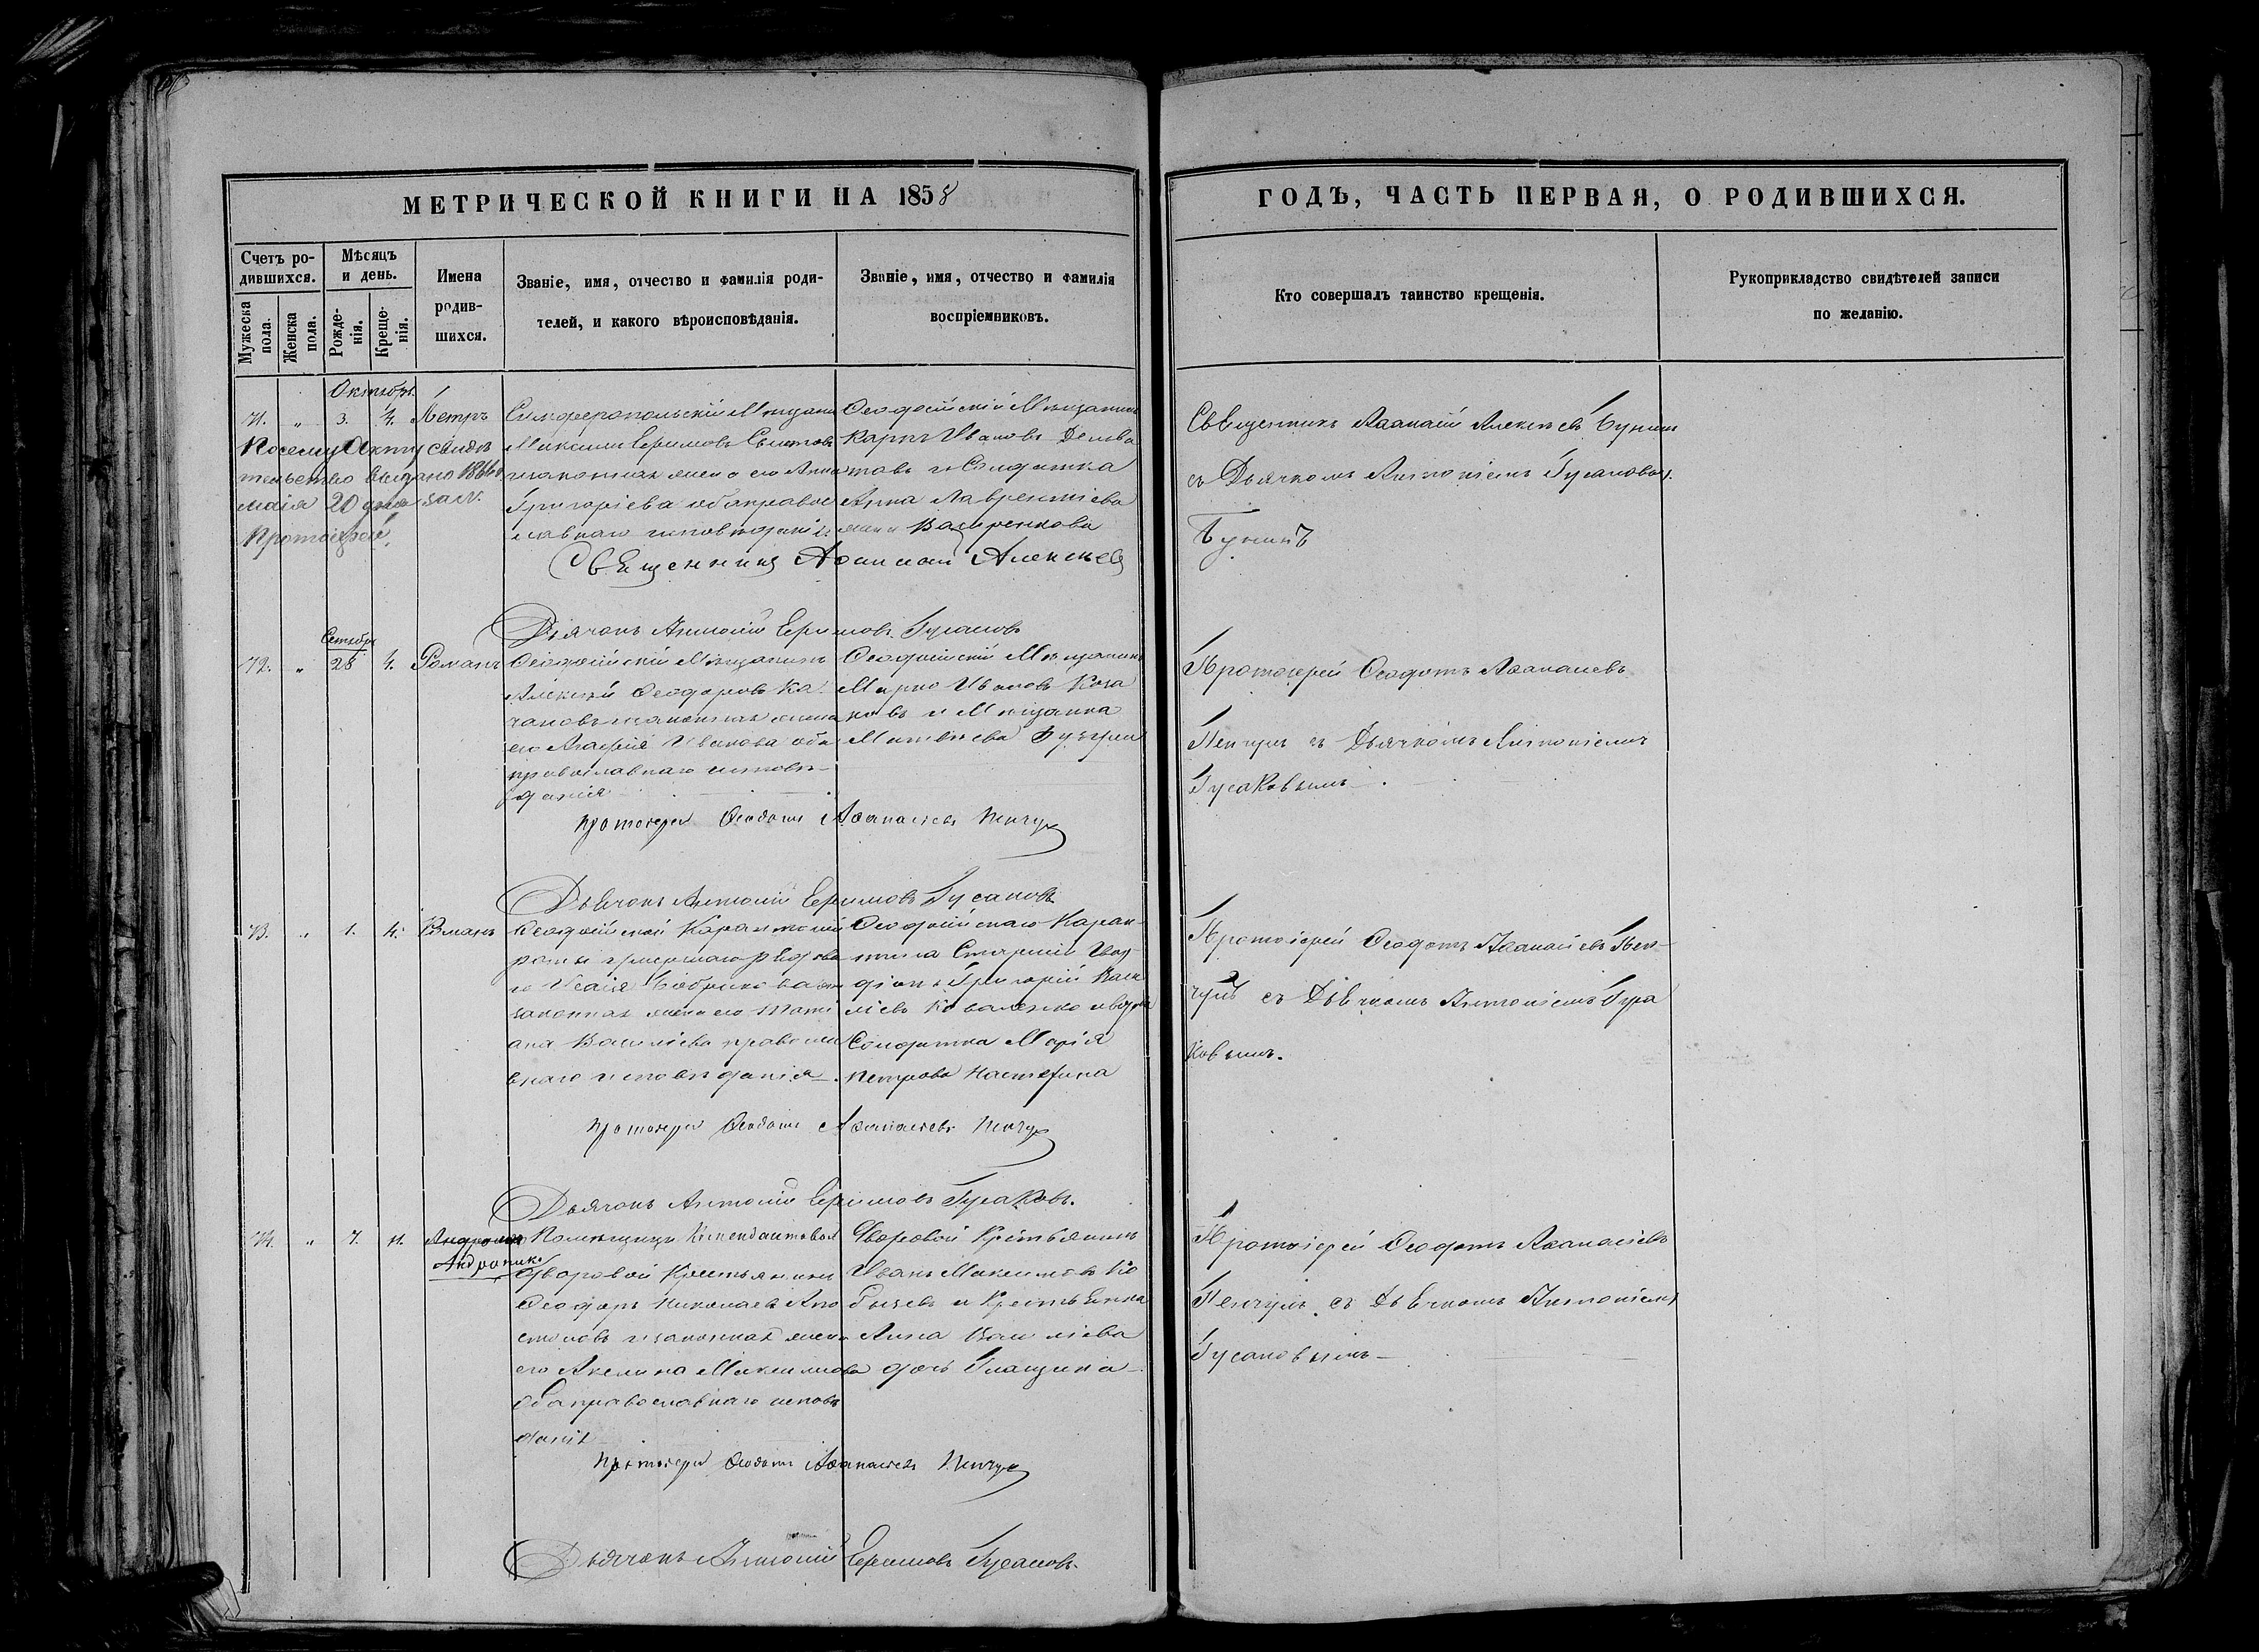 МЕТРИЧЕСКОЙ КНИГИ НА 1858
ГОДЪ, ЧАСТЬ ПЕРВАЯ, О РОДИВШИХСЯ.
Счетъ родившихся.
Мужеска пола.
Женска пола.
Мѣсяцъ и день.
Рожденія.
Крещенія.
Имена
родив-
шихся.
Званіе, имя, отчество и фамилія роди-
телей, и какого вѣроисповѣданія.
Званіе, имя, отчество и фамилія
воспріемниковъ.
Кто совершалъ таинство крещенія.
Рукоприкладство свидѣтелей записи
по желанію.
Октябрь
71. " 3. 4. Петръ
По сему Акту свидѣ
тельство выдано 1866
маія 20 дня за №.
Протоіерей
Симферопольскій Мѣщанин
Максимъ Ефимовъ
и законная жена его Анна
Григоріева оба правос
лавнаго исповѣданія
Ѳеодосійскій Мѣщанинъ
Карпъ Ивановъ
и Солдатка
Анна Лаврентіева
Священникъ Аѳанасій Алексѣевъ
Священникъ Аѳанасій Алексѣевъ Бунинъ
съ Дьячкомъ Антоніемъ Гусаковым.
Бунинъ
Дьячокъ Антоній Ефимовъ Гусаковъ
Сентябрь
72. " 28 4. Романъ
Ѳеодосійскій Мѣщанинъ
Алексѣй Ѳеодоровъ Ка
чановъ и законная жена
его Агафія Иванова оба
православнаго исповѣ
данія
Ѳеодосійскій Мѣщанинъ
Марко Ивановъ Каза
ковъ и Мѣщанка
Матвѣева
Протоіерей Ѳеодотъ Аѳанасіевъ
Пенчулъ съ Дьячкомъ Антоніемъ
Гусаковымъ.
Протоіерей Ѳеодотъ Аѳанасіевъ Пенчулъ
Дьячокъ Антоній Ефимовъ Гусаковъ
73. " 1. 4. Романъ
Ѳеодосійской Карантинной
роты умершаго рядова
го Исаія
законная жена его Тати
ана Васильева правосла
внаго исповѣданія.
Ѳеодосійскаго Каран
тина Старшій Гвар
діонъ Григорій Васи
ліевъ Коваленко и вдова
Солдатка Марія
Петрова
Протоіерей Ѳеодотъ Аѳанасіевъ Пен-
чулъ съ Дьячкомъ Антоніемъ Гуса
ковымъ.
Протоіерей Ѳеодотъ Аѳанасіевъ Пенчулъ
Дьячокъ Антоній Ефимовъ Гусаковъ.
74. " 7. 11.
Андроникъ
Помѣщицы Комендантовой
дворовой Крестьянинъ
Ѳеодоръ Николаевъ Апо
столовъ и законная жена
его Акелина Максимова
оба православнаго исповѣ
данія
Дворовой Крестьянинъ
Иванъ Максимовъ Ко
бызевъ и Крестьянка
Анна Васильева
дочь
Протоіерей Ѳеодотъ Аѳанасіевъ
Пенчулъ съ Дьячкомъ Антоніемъ
Гусаковымъ
Протоіерей Ѳеодотъ Аѳанасіевъ Пенчулъ
Дьячокъ Антоній Ефимовъ Гусаковъ.